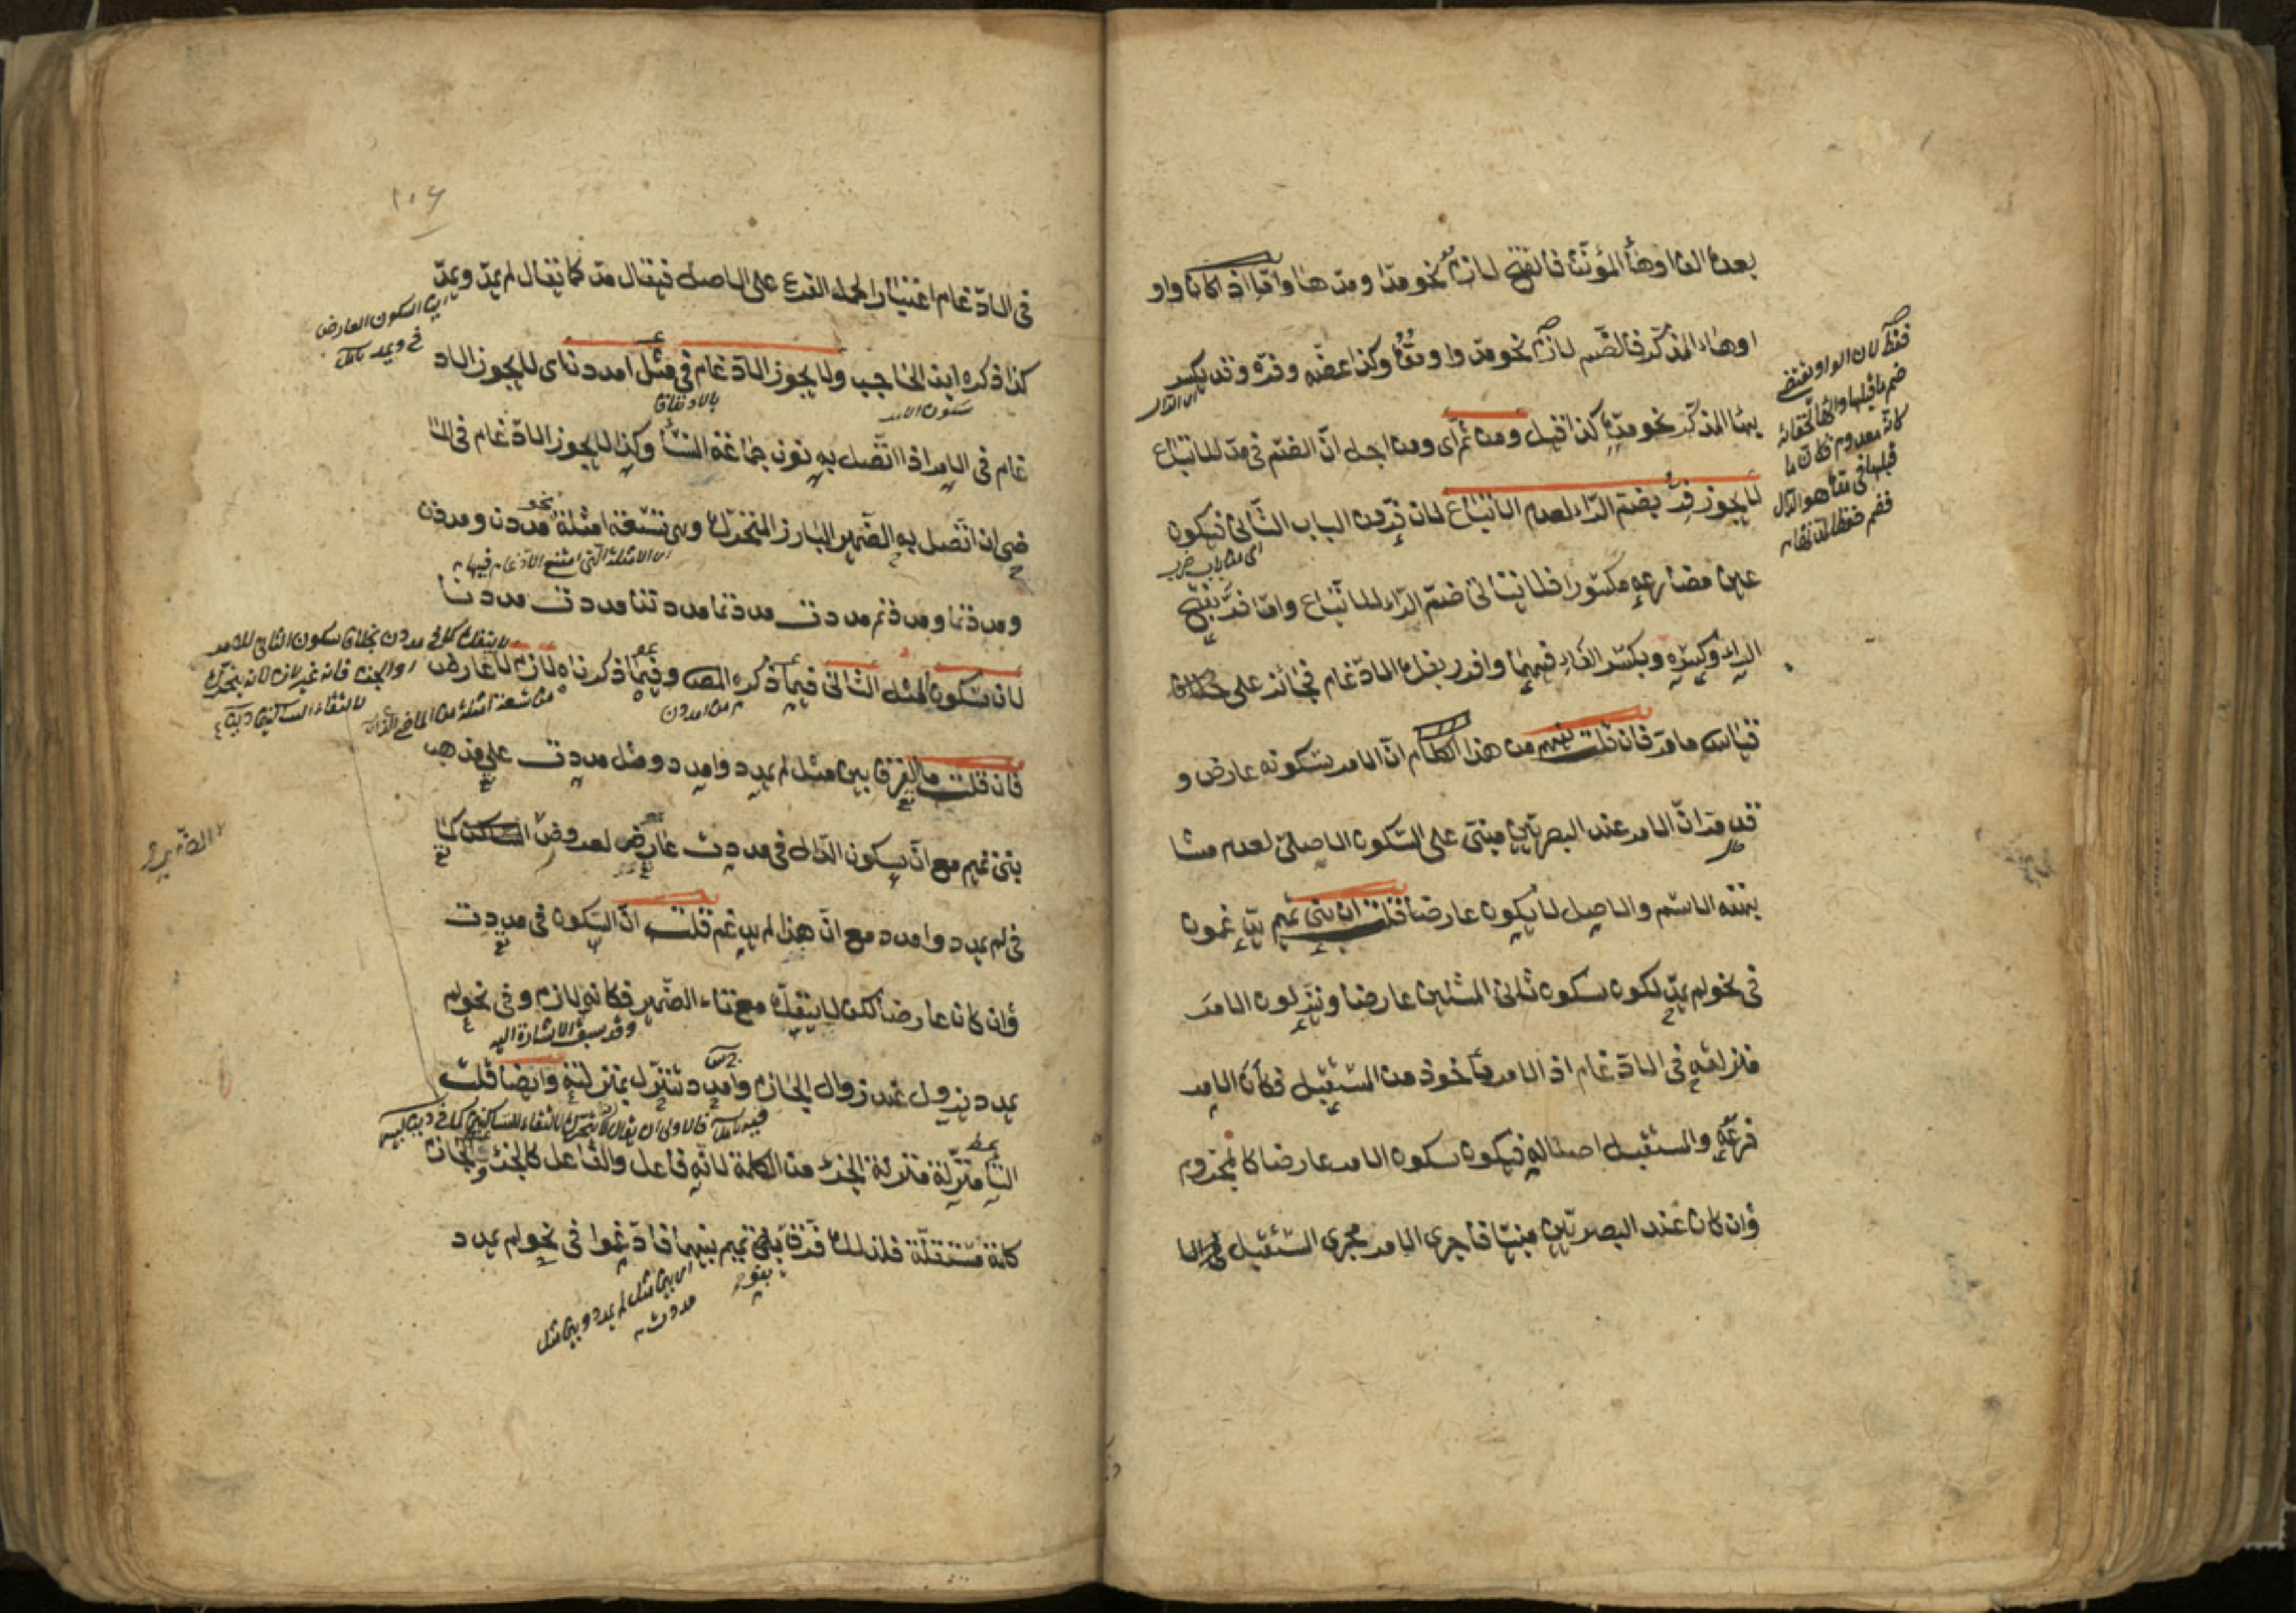 بعده الف او هاء المؤنث فالفتح لازم نحو مدّا ومدّها وامّا اذا كان واو
او هاء المذكّر فالضّم لازم نحو مدّوا ومدّه وكذا عضّه وفرّه وقد يكسر
بهاء المذكّر نحو مدّه كذا قيل ومن ثم اى ومن اجل انّ الضّم فى مدّ للاتباع
لا يجوز فرّ بضم الرّاء لعدم الاتباع لان فرّ من الباب الثّانى فيكون
اى من باب ضرب
عين مضارعه مكسورا فلا يتأتى ضمّ الرّاء للاتباع وامّا فرّ بفتح
الراء وكسره وبكسر الفاء فيهما وافرر بفك الادّغام فجائز على
قياس ما مرّ فان قلت فهم من هذا الكلام انّ الامر بسكونه عارض و
قد مرّ انّ الامر عند البصريّين مبنىّ على السّكون الاصلىّ لعدم مشا
بهته الاسم والاصل لا يكون عارضا قلت ان بنى تميم يدّغمون
فى نحو لم يمدّ لكون سكون ثانى المثلين عارضا وينزلون الامر
منزلته فى الادّغام اذ الامر مأخوذ من المستقبل فكأن الامر
فرعه والمستقبل اصلا له فيكون سكون الامر عارضا كالمجزوم
وان كان عند البصريّين مبنيّا فاجرى الامر مجرى المستقبل فى الا
فقط لان الواو تقتضى
ضم ما قبلها والهاء لخفائه
كانه معدوم فكان ما
قبلها فى مدّه هو الدّال
١٠٦
فى الادّغام اعتبارا لحمل الفرع على الاصل فيقال مدّ كما يقال لم يمدّ ويمدّ
كذا ذكره ابن الحاجب ولا يجوز الادّغام فى مثل امددن اى لا يجوز الاد
بالاتفاق
سكون الامر
غام فى الامر اذا اتّصل به نون جماعة النساء وكذا لا يجوز الادّغام فى الما
ضى ان اتّصل به الضّمير البارز المتحرّك وهى تسعة امثلة نحو مددن ومددت
اى الامثلة التى امتنع الادّغام فيها
ومددتما ومددتم مددت مددتما مددتنّ مددت مددنا
لان سكون المثل الثّانى فيما ذكره المص وفيما ذكرناه لازم لا عارض
من امددن
فان قلت ما الفرق بين مثل لم يمدد وامدد ومثل مددت على مذهب
بنى تميم مع انّ سكون الدّال فى مددت عارض لعروض السّاكن كما
فى لم يمدد وامدد مع انّ هذا لم يدغم قلت انّ السّكون فى مددت
وان كان عارضا لكن لا ينفكّ مع تاء الضّمير فكانه لازم وفى نحو لم
وقد سبق الاشارة اليه
يمدد يزول عند زوال الجازم وامدد تنزل بمنزلته وايضا قلت
التّاء منزّلة منزلة الجزء من الكلمة لانّه فاعل والفاعل كالجزء والجازم
كلمة مستقلّة فلذلك فرّق بنى تميم بينهما فادّغموا فى نحو لم يمدد
اى بين مثل لم يمدد وبين مثل
مددت
الضّمير